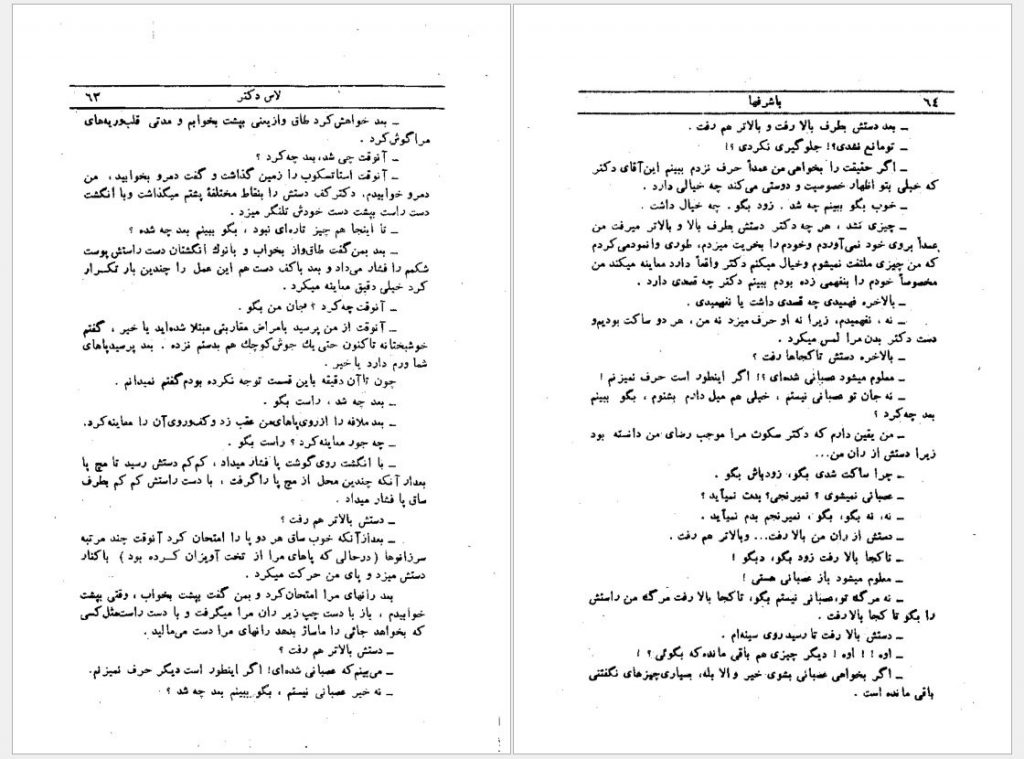 لاس دکتر ٦٣
ـ بعد خواهش کرد طاق وازیعنی بپشت بخوابم و مدتی قلب‌وریه‌های
مراگوش کرد .
ـ آنوقت چی شد، بعد چه کرد ؟
ـ آنوقت استاتسکوپ را زمین گذاشت و گفت دمرو بخوابید، من
دمرو خوابیدم. دکتر کف دستش را بنقاط مختلفهٔ پشتم میگذاشت وبا انگشت
دست راست بپشت دست خودش تلنگر میزد .
ـ تا اینجا هم چیز تازه‌ای نبود ، بگو ببینم بعد چه شده ؟
ـ بعد بمن گفت طاق‌واز بخواب و بانوك انگشتان دست راستش پوست
شکمم را فشار می‌داد و بعد باکف دست هم این عمل را چندین بار تکـرار
کرد خیلی دقیق معاینه میکرد .
ـ آنوقت چه کرد ؟ جان من بگو .
ـ آنوقت از من پرسید بامراض مقاربتی مبتلا شده‌اید یا خیر ، گفتم
خوشبختانه تاکنون حتی یك جوش کوچك هم بدستم نزده . بعد پرسیدپاهای
شما ورم دارد یا خیر .
چون تاآن دقیقه باین قسمت توجه نکرده بودم گفتم نمیدانم .
ـ بعد چه شد ، راست بگو .
ـ بعدملافه را ازروی‌پاهای‌من عقب زد وکف‌وروی‌آن را معاینه‌کرد.
ـ چه جور معاینه‌کرد ؟ راست بگو .
ـ با انگشت روی گوشت پا فشار میداد ، کم‌کم دستش رسید تا مچ پا
بعداز آنکه چندین محل از مچ پا راگرفت ، با دست راستش کم کم بطرف
ساق پا فشار میداد .
ـ دستش بالاتر هم رفت ؟
ـ بعدازآنکه خوب ساق هر دو پا را امتحان کرد آنوقت چند مرتبه
سرزانوها (درحالی که پاهای مرا از تخت آویزان کـرده بود ) باکنار
دستش میزد و پای من حرکت میکرد .
بعد رانهای مرا امتحان‌کرد و بمن گفت بپشت بخواب ، وقتی بپشت
خوابیدم ، باز با دست چپ زیر ران مرا میگرفت و با دست راست‌مثل‌کسی
که بخواهد جائی را ماساژ بدهد رانهای مرا دست می‌مالید .
ـ دستش بالاتر هم رفت ؟
ـ می‌بینم که عصبانی شده‌ای! اگر اینطور است دیگر حرف نمیزنم.
ـ نه خیر عصبانی نیستم ، بگو ببینم بعد چه شد ؟
باشرفها ٦٤
ـ بعد دستش بطرف بالا رفت و بالاتر هم رفت .
ـ تومانع نشدی؟! جلوگیری نکردی ؟!
ـ اگر حقیقت را بخواهی من عمداً حرف نزدم ببینم این‌آقای دکتر
که خیلی بتو اظهار خصوصیت و دوستی می‌کند چه خیالی دارد .
ـ خوب بگو ببینم چه شد . زود بگو . چه خیال داشت .
ـ چیزی نشد ، هر چه دکتر دستش بطرف بالا و بالاتر میرفت من
عمداً بروی خود نمی‌آوردم وخودم را بخریت میزدم، طوری وانمودمی‌کردم
که من چیزی ملتفت نمیشوم وخیال میکنم دکتر واقعاً دارد معاینه میکند من
مخصوصاً خودم را بنفهمی زده بودم ببینم دکتر چه قصدی دارد .
ـ بالاخره فهمیدی چه قصدی داشت یا نفهمیدی .
ـ نه ، نفهمیدم، زیرا نه او حرف‌میزد نه من ، هر دو ساکت بودیم‌و
دست دکتر بدن مرا لمس میکرد .
ـ بالاخره دستش تاکجاها رفت ؟
ـ معلوم میشود عصبانی شده‌ای ؟! اگر اینطور است حرف نمیزنم !
ـ نه جان تو عصبانی نیستم ، خیلی هم میل دارم بشنوم ، بگو ببینم
بعد چه‌کرد ؟
ـ من یقین دارم که دکتر سکوت مرا موجب رضای من دانسته بود
زیرا دستش از ران من...
ـ چرا ساکت شدی بگو، زودباش بگو .
ـ عصبانی نمیشوی ؟ نمیرنجی؟ بدت نمیآید ؟
ـ نه، نه بگو، بگو ، نمیرنجم بدم نمیآید .
ـ دستش از ران من بالا رفت... وبالاتر هم رفت .
ـ تاکجا بالا رفت زود بگو، دبگو !
ـ معلوم میشود باز عصبانی هستی !
ـ نه مرگ تو،عصبانی نیستم بگو، تاکجا بالا رفت مرگ من راستش
را بگو تا کجا بالارفت .
ـ دستش بالا رفت تا رسید روی سینه‌ام .
ـ اوه ! ! اوه ! دیگر چیزی هم باقی مانده‌که بگوئی ؟ !
ـ اگر بخواهی عصبانی بشوی خیر و الا بله، بسیاری‌چیزهای نگفتنی
باقی مانده است .